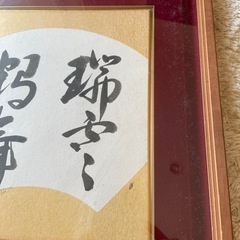 瑞雲
鶴舞